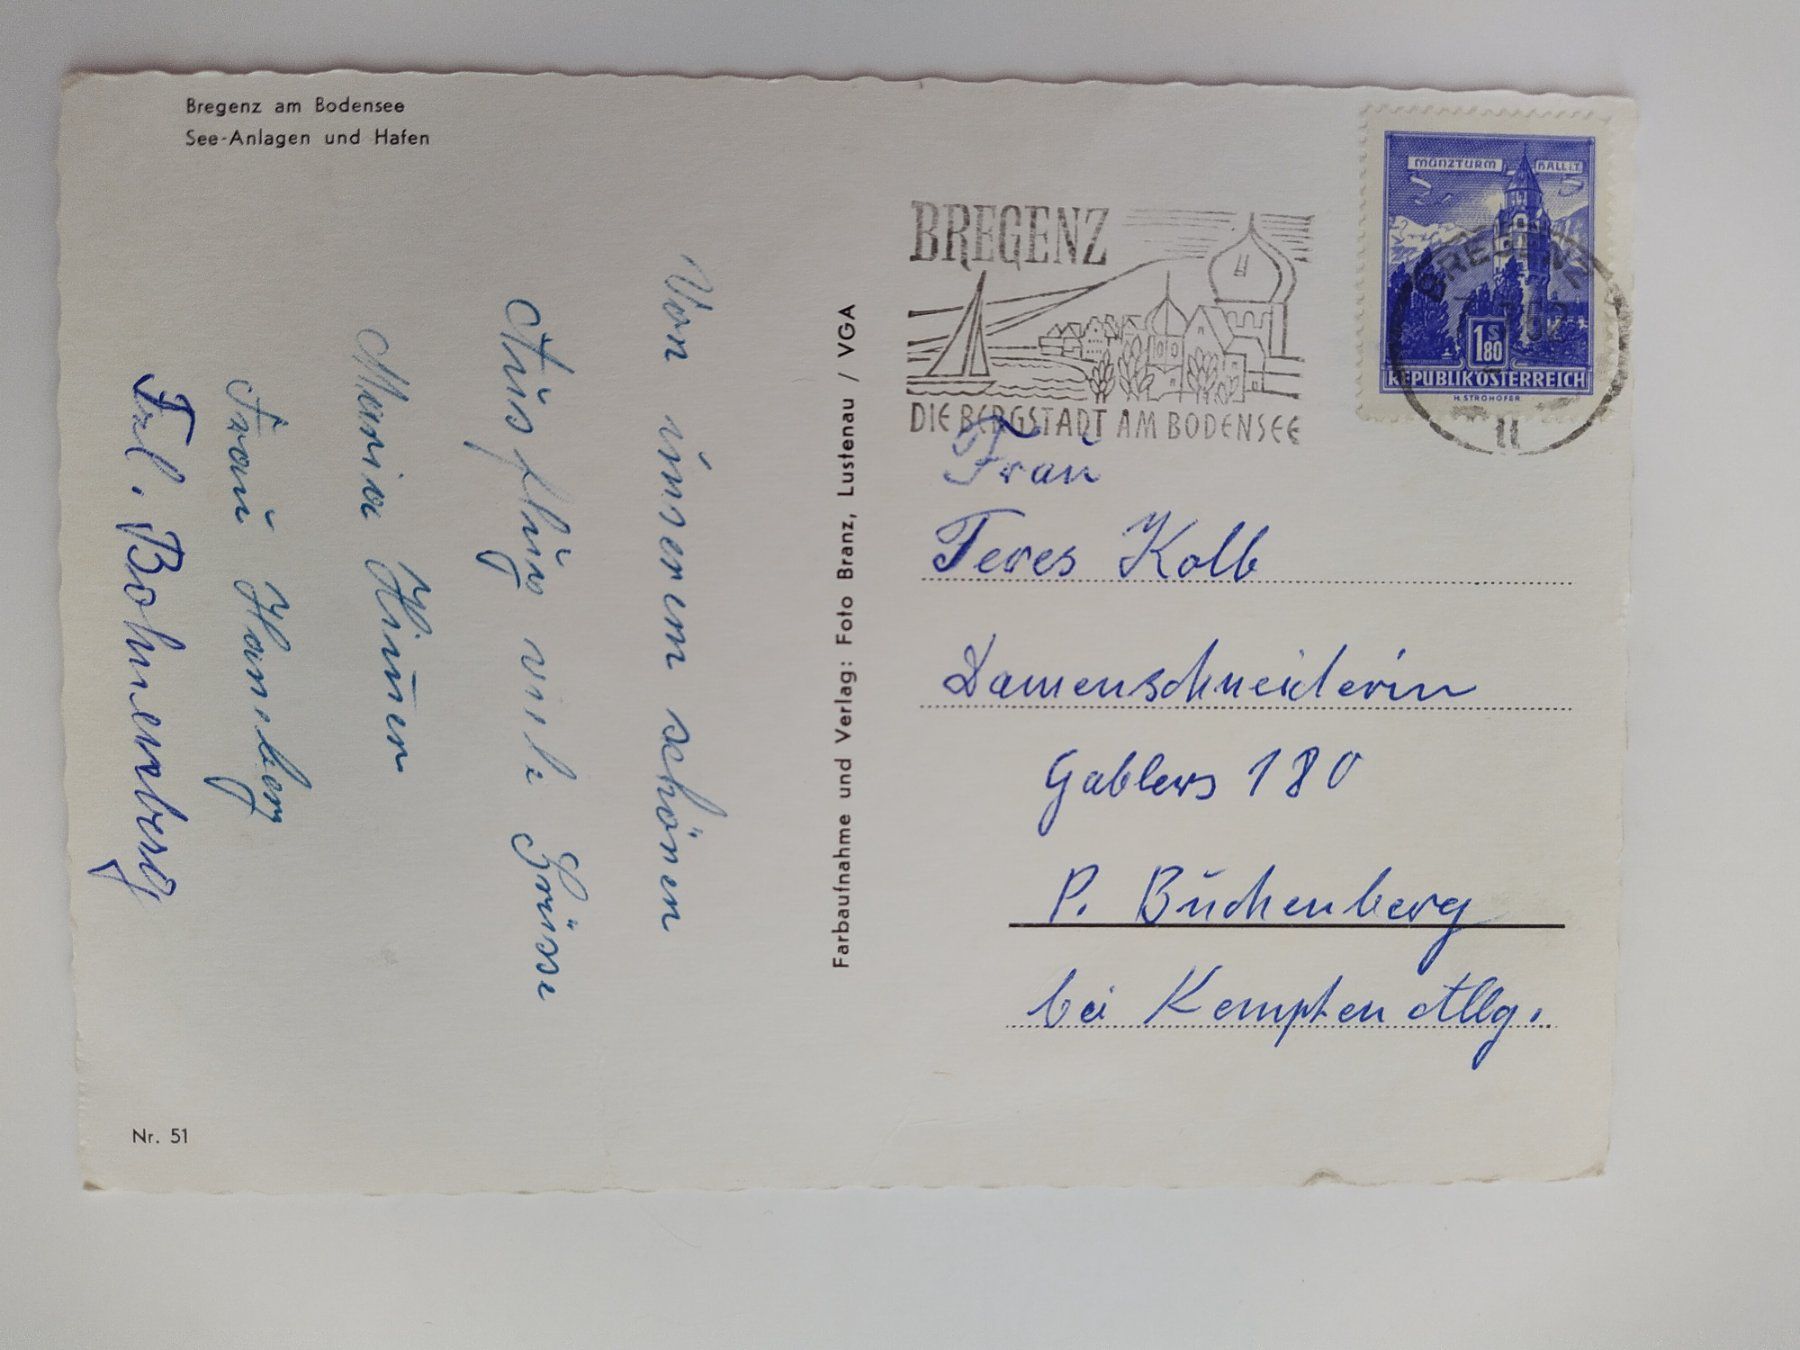 Bregenz am Bodensee
See-Anlagen und Hafen
Von unserem schönen
Ausflug viele Grüsse
Maria
Frau
Frl. Bohnenberg
Nr. 51
Farbaufnahme und Verlag: Foto Branz, Lustenau / VGA
BREGENZ
DIE BERGSTADT AM BODENSEE
MÜNZTURM HALL I.T.
1 S 80
REPUBLIK ÖSTERREICH
H. STROHOFER
BREGENZ
Frau
Teres Kolb
Damenschneiderin
Gablers 180
P. Buchenberg
bei Kempten Allg.